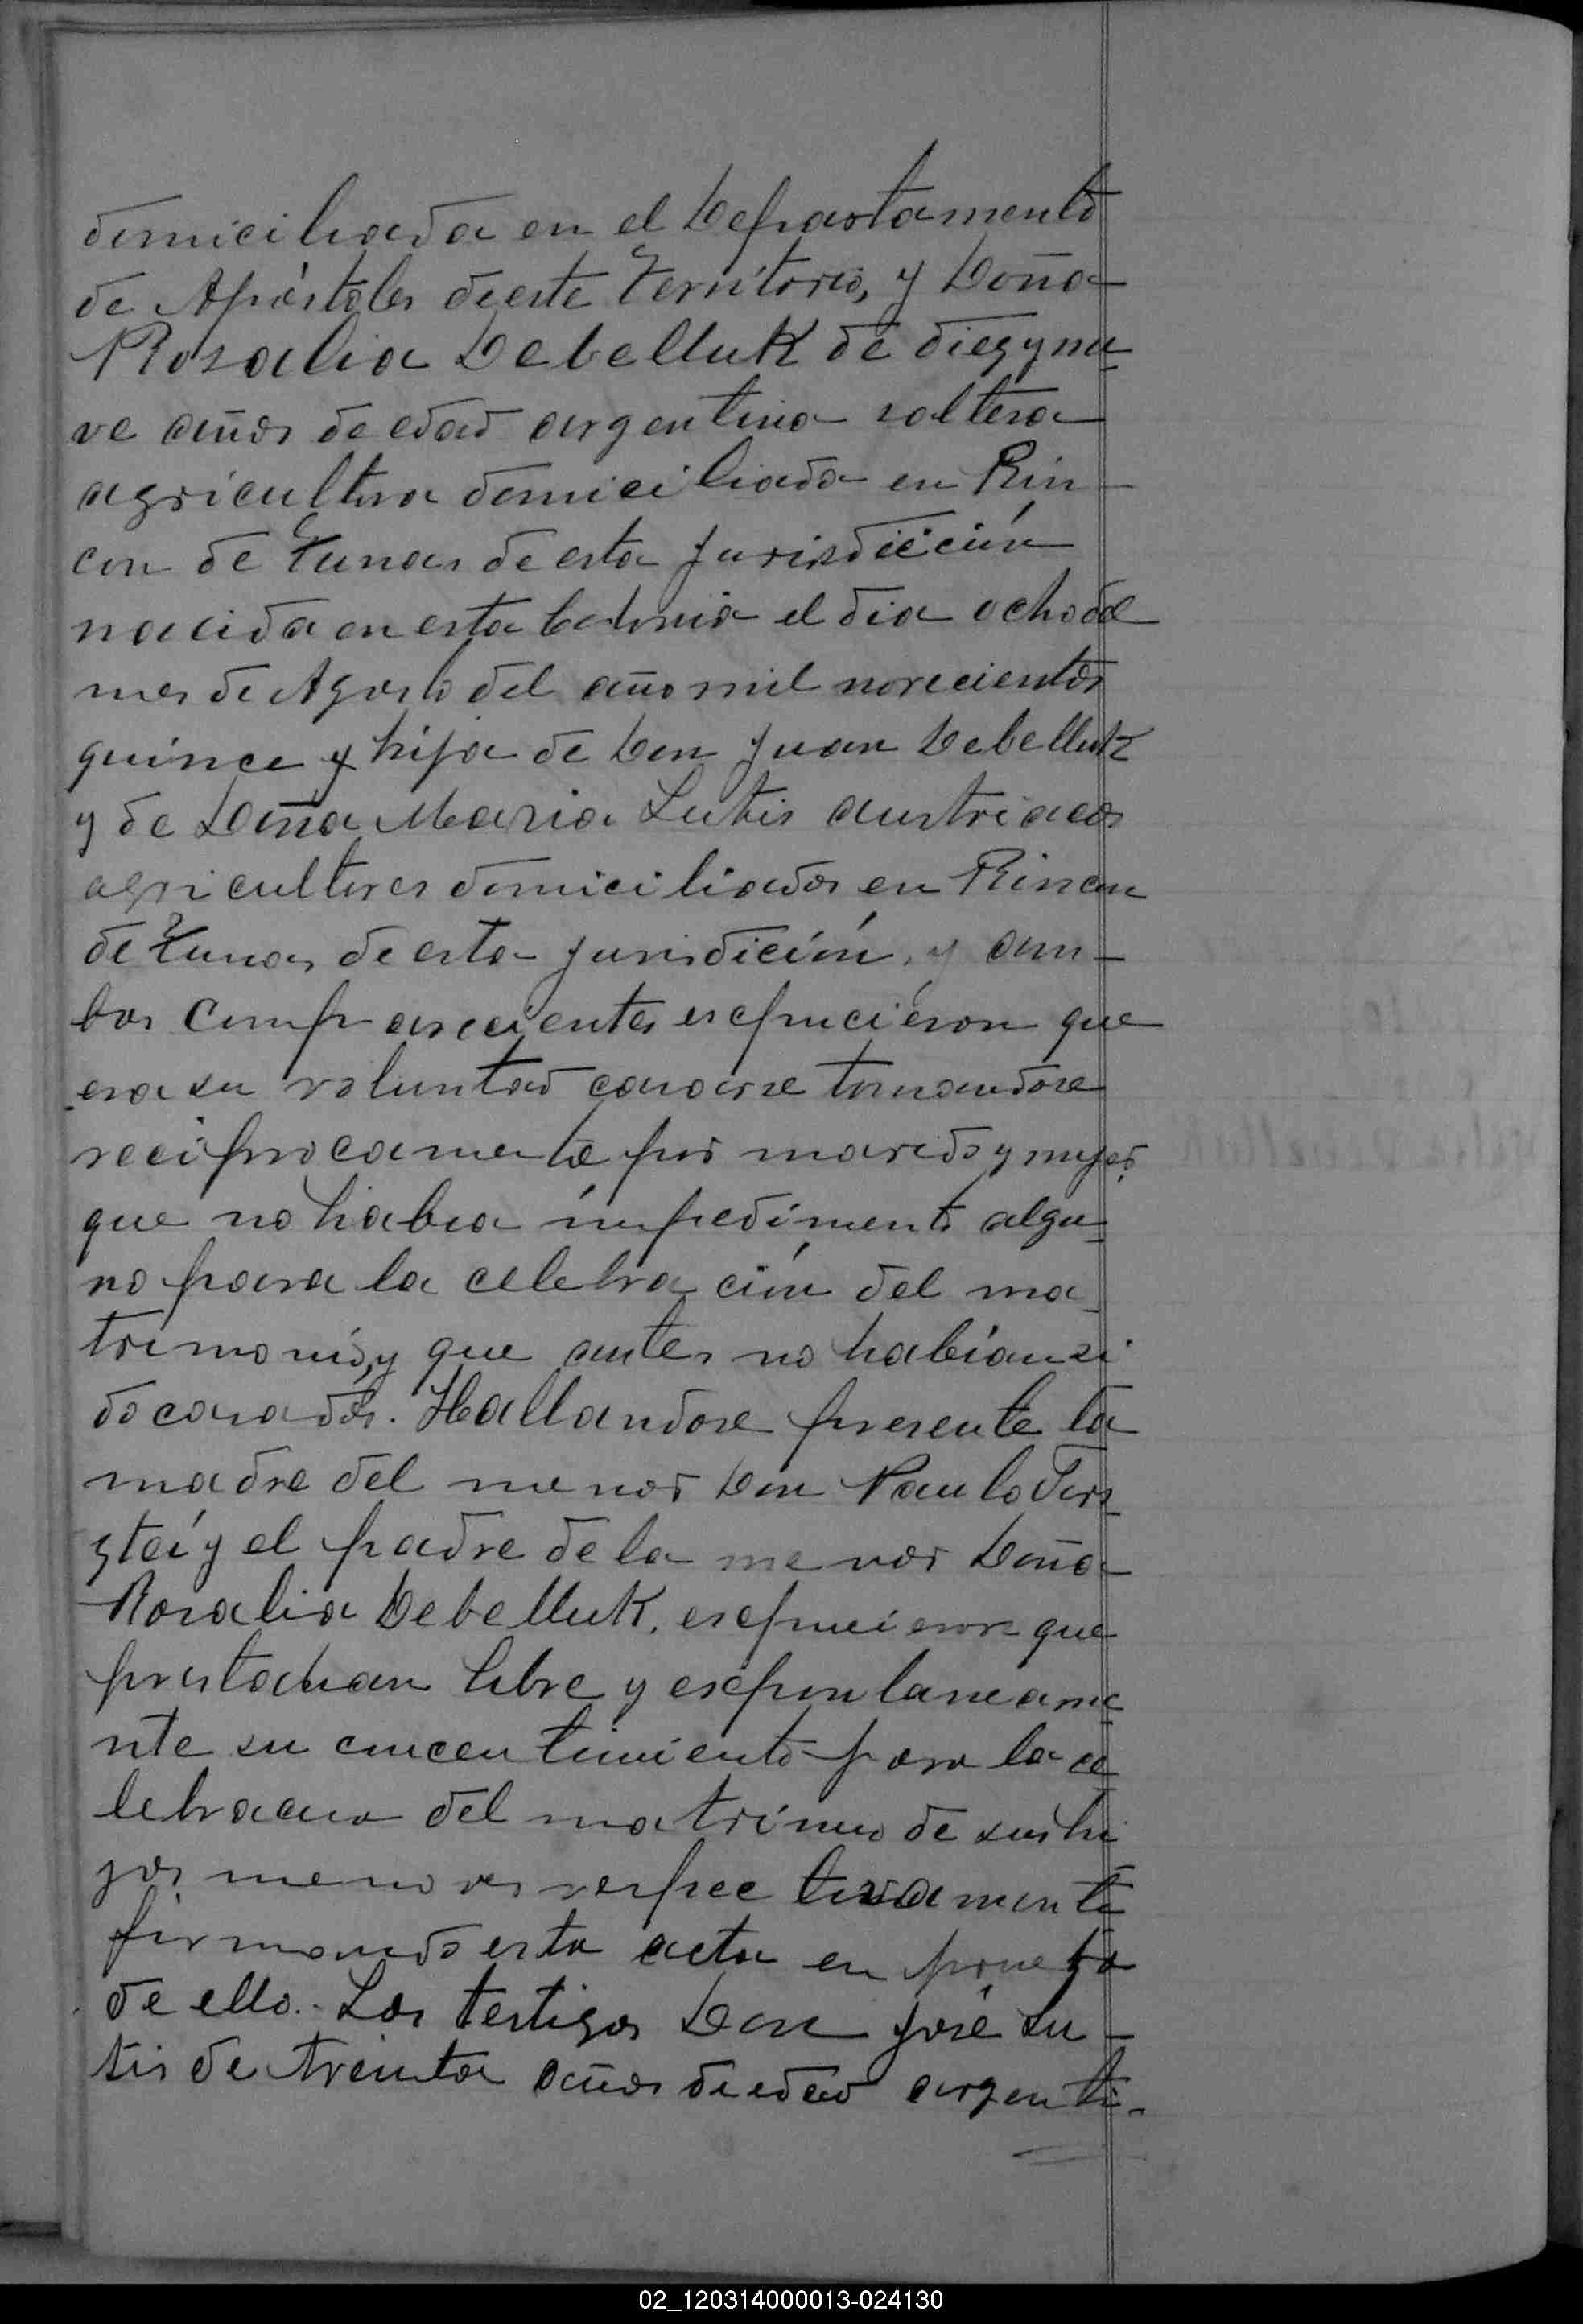 domiciliada en el Departamento
de Apóstoles de este Territorio, y Doña
Rosalia Debelluk de diez y nu-
ve años de edad argentina soltera
agricultora domiciliada en Rin-
con de Tunas de esta Jurisdicción
nacida en esta Colonia el dia ocho del
mes de Agosto del año mil novecientos
quince y hija de Don Juan Debelluk
y de Doña Maria Lutis austriacos
agricultores domiciliados en Rincon
de Tunas de esta jurisdición, y am-
bos comparecientes expucieron que
era su voluntad casarse tomandose
reciprocamente por marido y mujer
que no habia impedimento algu-
no para la celebración del ma-
trimonio, y que antes no habían si
do casados. Hallandose presente la
madre del menor Don Paulo Ters
ztei y el padre de la menor Doña
Rosalia Debelluk, expucieron que
prestaban libre y expontaneame
nte su concentimiento para la ce
lebracion del matrimo de sus hi
jos menores respectivamente
firmando esta acta en prueba
de ello.- Los testigos Don José Lu-
tis de treinta años de edad argenti-
02_120314000013-024130